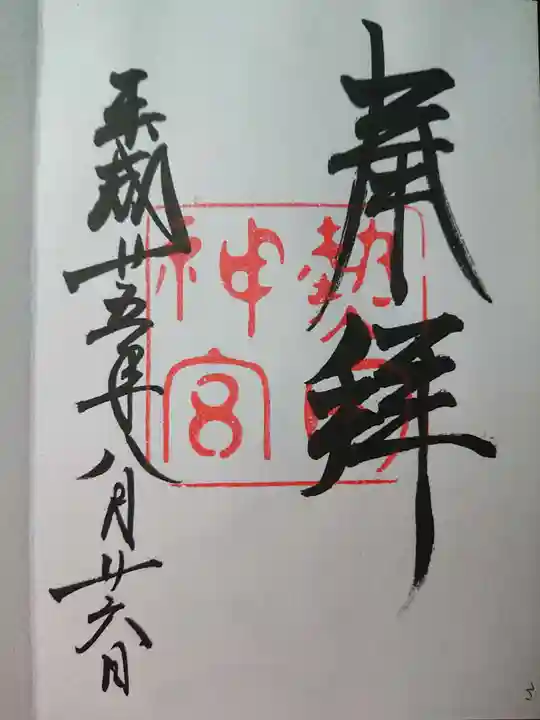 奉拝
熱田
神宮
平成廿五年八月廿六日